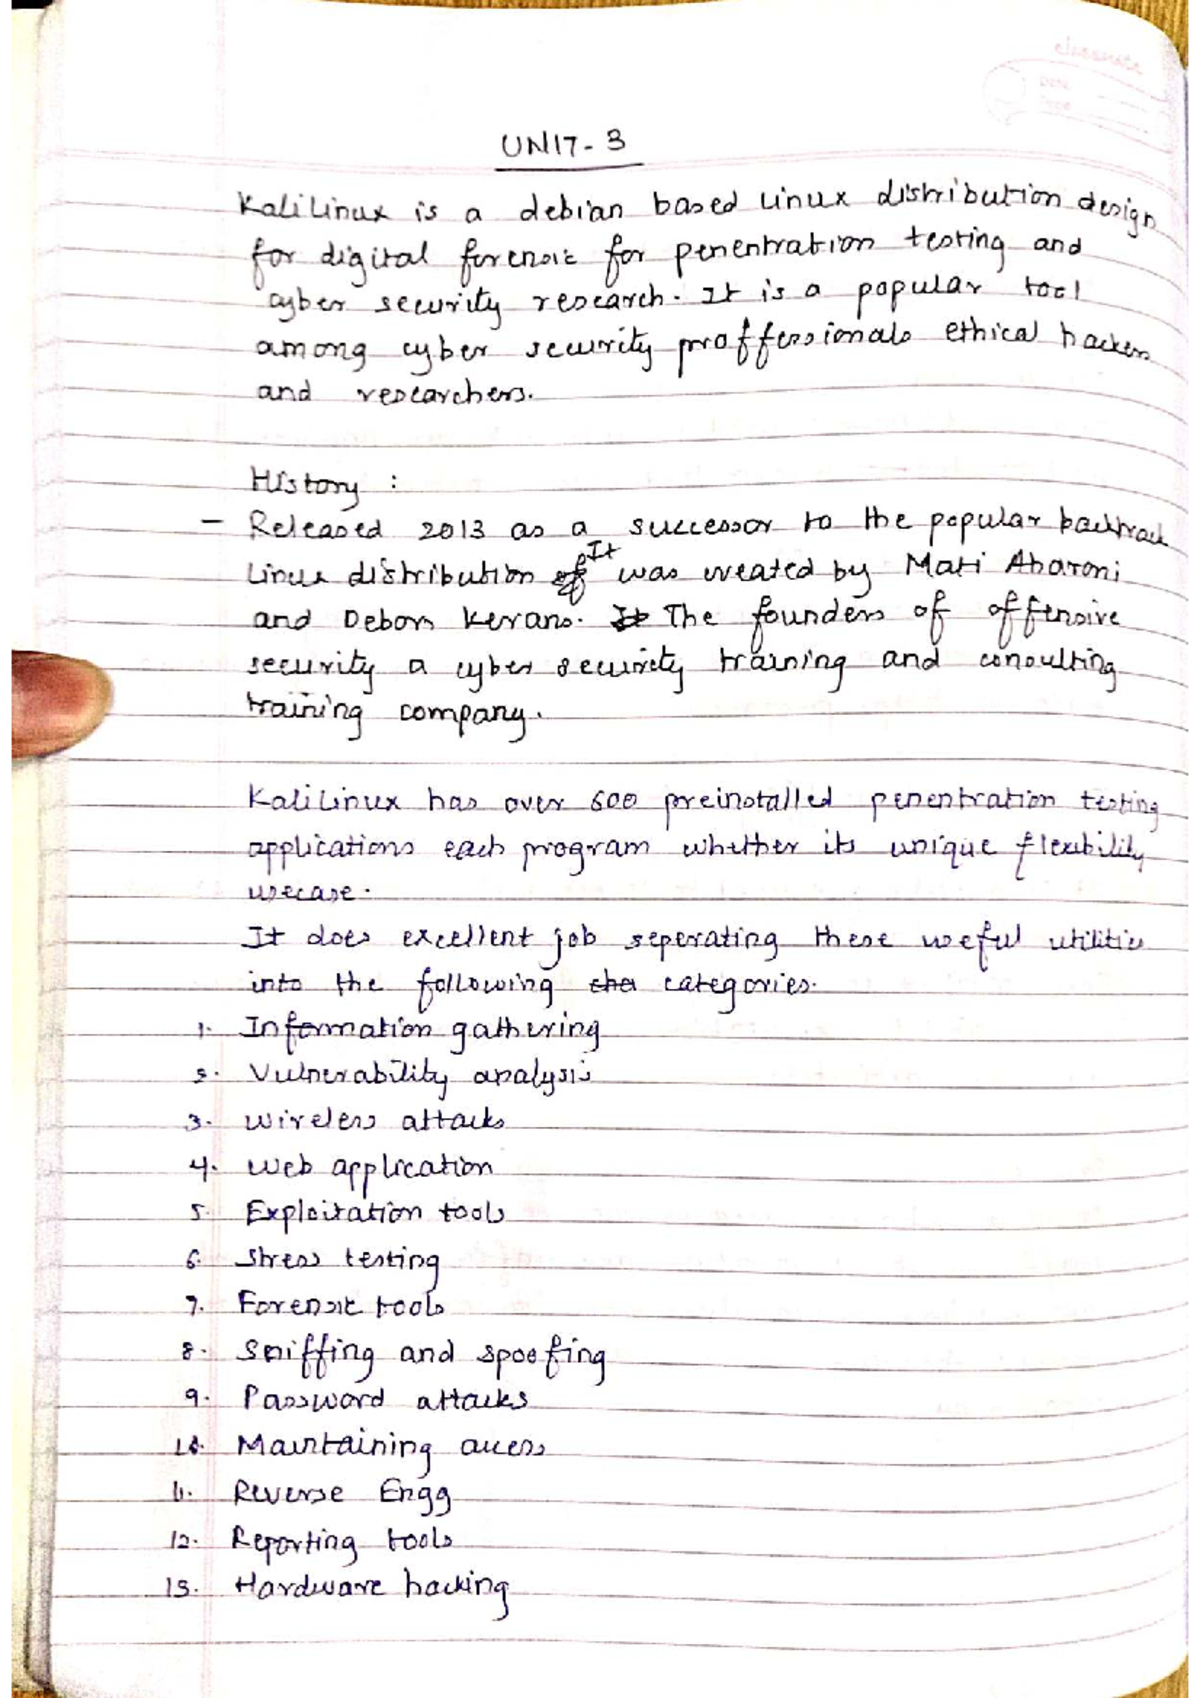 classmate
Date
Page
UNIT-3
Kali Linux is a debian based Linux distribution design
for digital forensic for penentration testing and
cyber security research. It is a popular tool
among cyber security proffessionals ethical hackers
and researchers.
History :
- Released 2013 as a successor to the popular backtrack
Linux distribution of It was created by Mati Aharoni
and Debom Kerans. It The founders of offensive
security a cyber security training and consulting
training company.
Kali Linux has over 600 preinstalled penentration testing
applications each program whether its unique flexibility
usecase.
It does excellent job seperating these useful utilities
into the following cha categories.
1. Information gathering
2. Vulnerability analysis
3. wireless attacks
4. web application
5. Exploitation tools
6. Stress testing
7. Forensic tools
8. Sniffing and spoofing
9. Password attacks
10. Maintaining access
11. Reverse Engg
12. Reporting tools
13. Hardware hacking